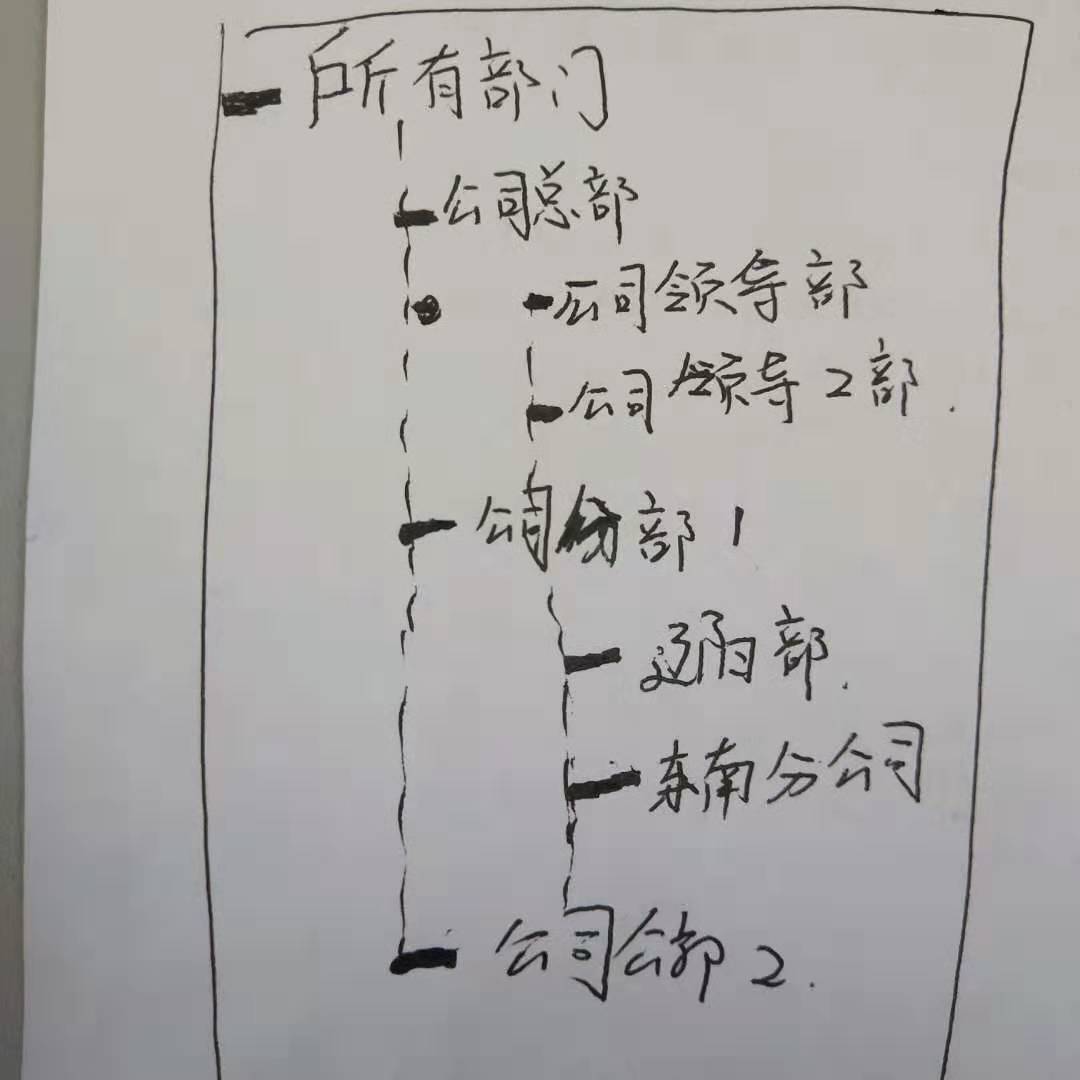 所有部门
公司总部
公司领导部
公司领导2部.
公司分部1
辽阳部.
东南分公司
公司分部2.